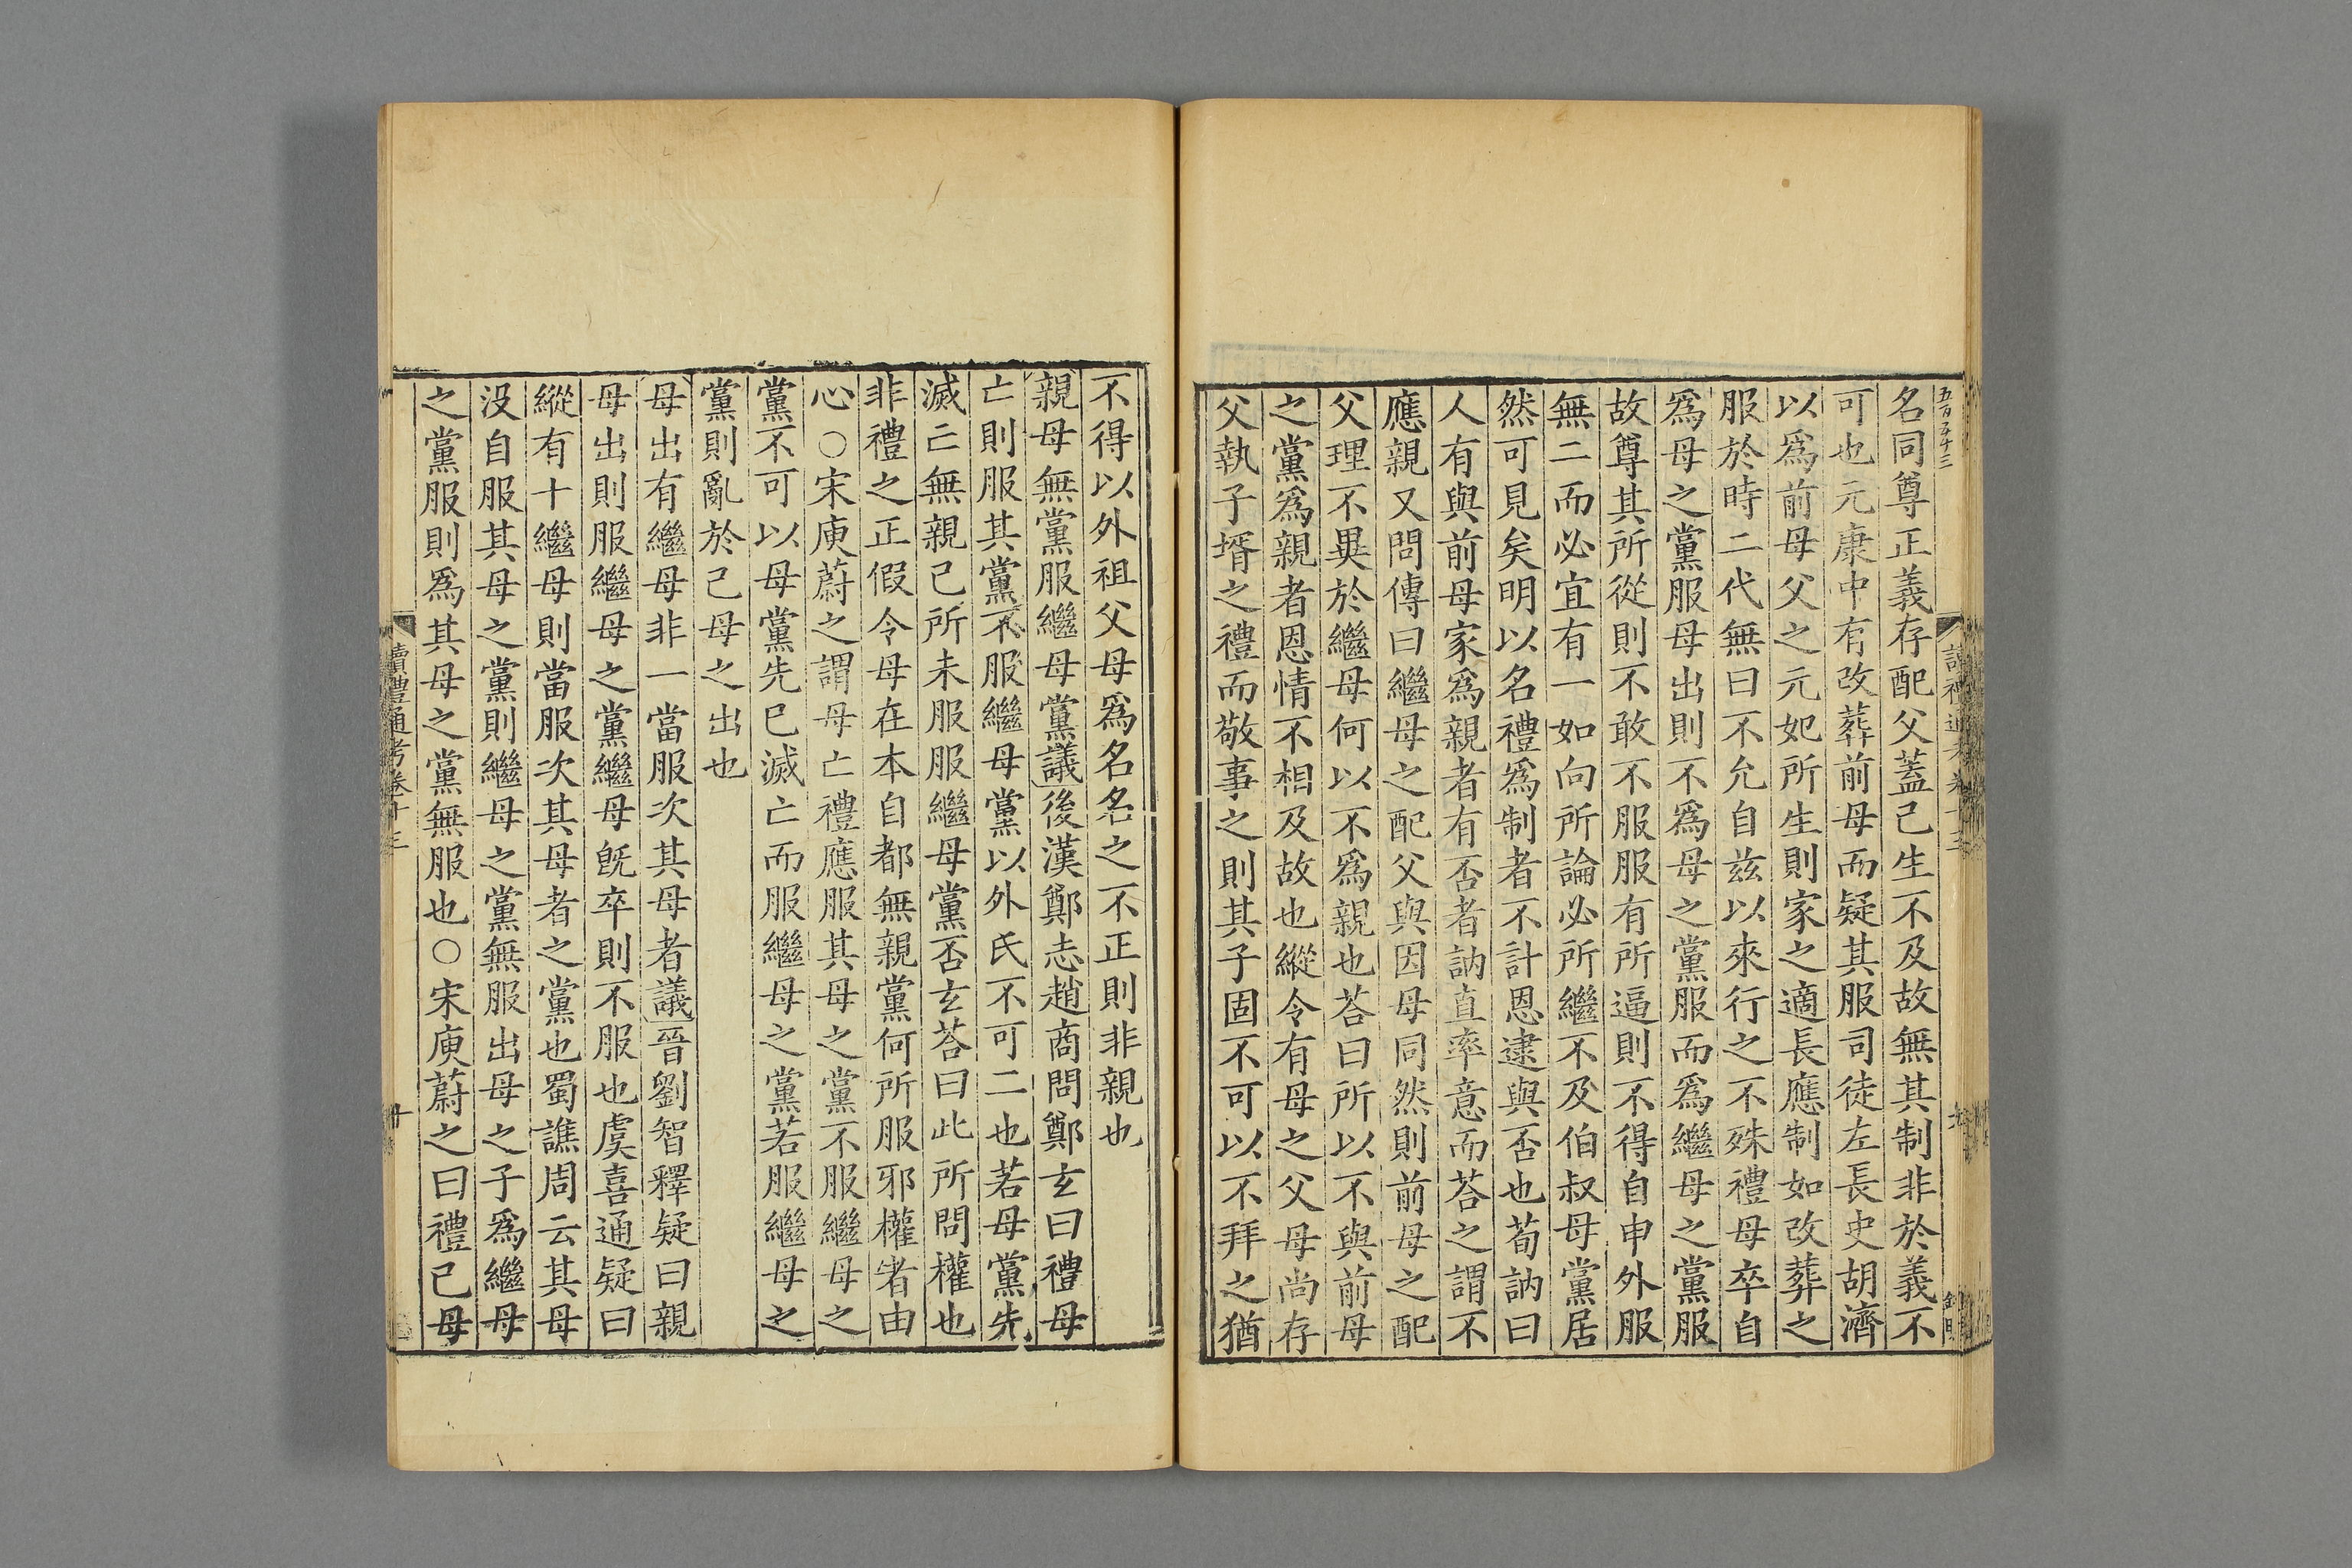 五百五十三
名同尊正義存配父蓋己生不及故無其制非於義不
可也元康中有改葬前母而疑其服司徒左長史胡濟
以爲前母父之元妃所生則家之適長應制如改葬之
服於時二代無曰不允自兹以來行之不殊禮母卒自
爲母之黨服母出則不爲母之黨服而爲繼母之黨服
故尊其所從則不敢不服服有所逼則不得自申外服
無二而必宜有一如向所論必所繼不及伯叔母黨居
然可見矣明以名禮爲制者不計恩逮與否也荀訥曰
人有與前母家爲親者有否者訥直率意而荅之謂不
應親又問傳曰繼母之配父與因母同然則前母之配
父理不異於繼母何以不爲親也荅曰所以不與前母
之黨爲親者恩情不相及故也縱令有母之父母尚存
父執子壻之禮而敬事之則其子固不可以不拜之猶
不得以外祖父母爲名名之不正則非親也
親母無黨服繼母黨議後漢鄭志趙商問鄭玄曰禮母
亡則服其黨不服繼母黨以外氏不可二也若母黨先
滅亡無親己所未服服繼母黨否玄荅曰此所問權也
非禮之正假令母在本自都無親黨何所服邪權者由
心○宋庾蔚之謂母亡禮應服其母之黨不服繼母之
黨不可以母黨先已滅亡而服繼母之黨若服繼母之
黨則亂於己母之出也
母出有繼母非一當服次其母者議晉劉智釋疑曰親
母出則服繼母之黨繼母旣卒則不服也虞喜通疑曰
縱有十繼母則當服次其母者之黨也蜀譙周云其母
没自服其母之黨則繼母之黨無服出母之子爲繼母
之黨服則爲其母之黨無服也○宋庾蔚之曰禮己母
讀禮通考卷十三